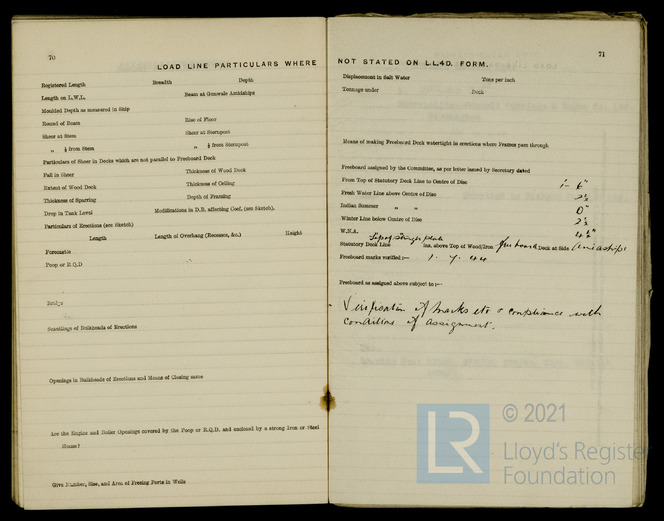 70
LOAD LINE PARTICULARS WHERE
Registered Length Breadth Depth
Length on L.W.L. Beam at Gunwale Amidships
Moulded Depth as measured in Ship
Round of Beam Rise of Floor
Sheer at Stem Sheer at Sternpost
„ ⅛ from Stem „ ⅛ from Sternpost
Particulars of Sheer in Decks which are not parallel to Freeboard Deck
Fall in Sheer Thickness of Wood Deck
Extent of Wood Deck Thickness of Ceiling
Thickness of Sparring Depth of Framing
Drop in Tank Level Modifications in D.B. affecting Coef. (see Sketch).
Particulars of Erections (see Sketch)
Length Length of Overhang (Recesses, &c.) Height
Forecastle
Poop or R.Q.D
Bridge
Scantlings of Bulkheads of Erections
Openings in Bulkheads of Erections and Means of Closing same
Are the Engine and Boiler Openings covered by the Poop or R.Q.D. and enclosed by a strong Iron or Steel
House?
Give Number, Size, and Area of Freeing Ports in Wells
71
NOT STATED ON LL4D. FORM.
Displacement in Salt Water Tons per inch
Tonnage under Deck
Means of making Freeboard Deck watertight in erections where Frames pass through
Freeboard assigned by the Committee, as per letter issued by Secretary dated
From Top of Statutory Deck Line to Centre of Disc 1'- 6"
Fresh Water Line above Centre of Disc 2½
Indian Summer „ „ 0"
Winter Line below Centre of Disc 2½
W.N.A. 4½"
Top of Stringer plate
Statutory Deck Line ins. above Top of Wood/Iron freeboard Deck at Side Amidships
Freeboard marks verified :— 1. 7. 44
Freeboard as assigned above subject to :—
Verification of marks etc & compliance with
conditions of assignment.
LR © 2021
Lloyd's Register
Foundation